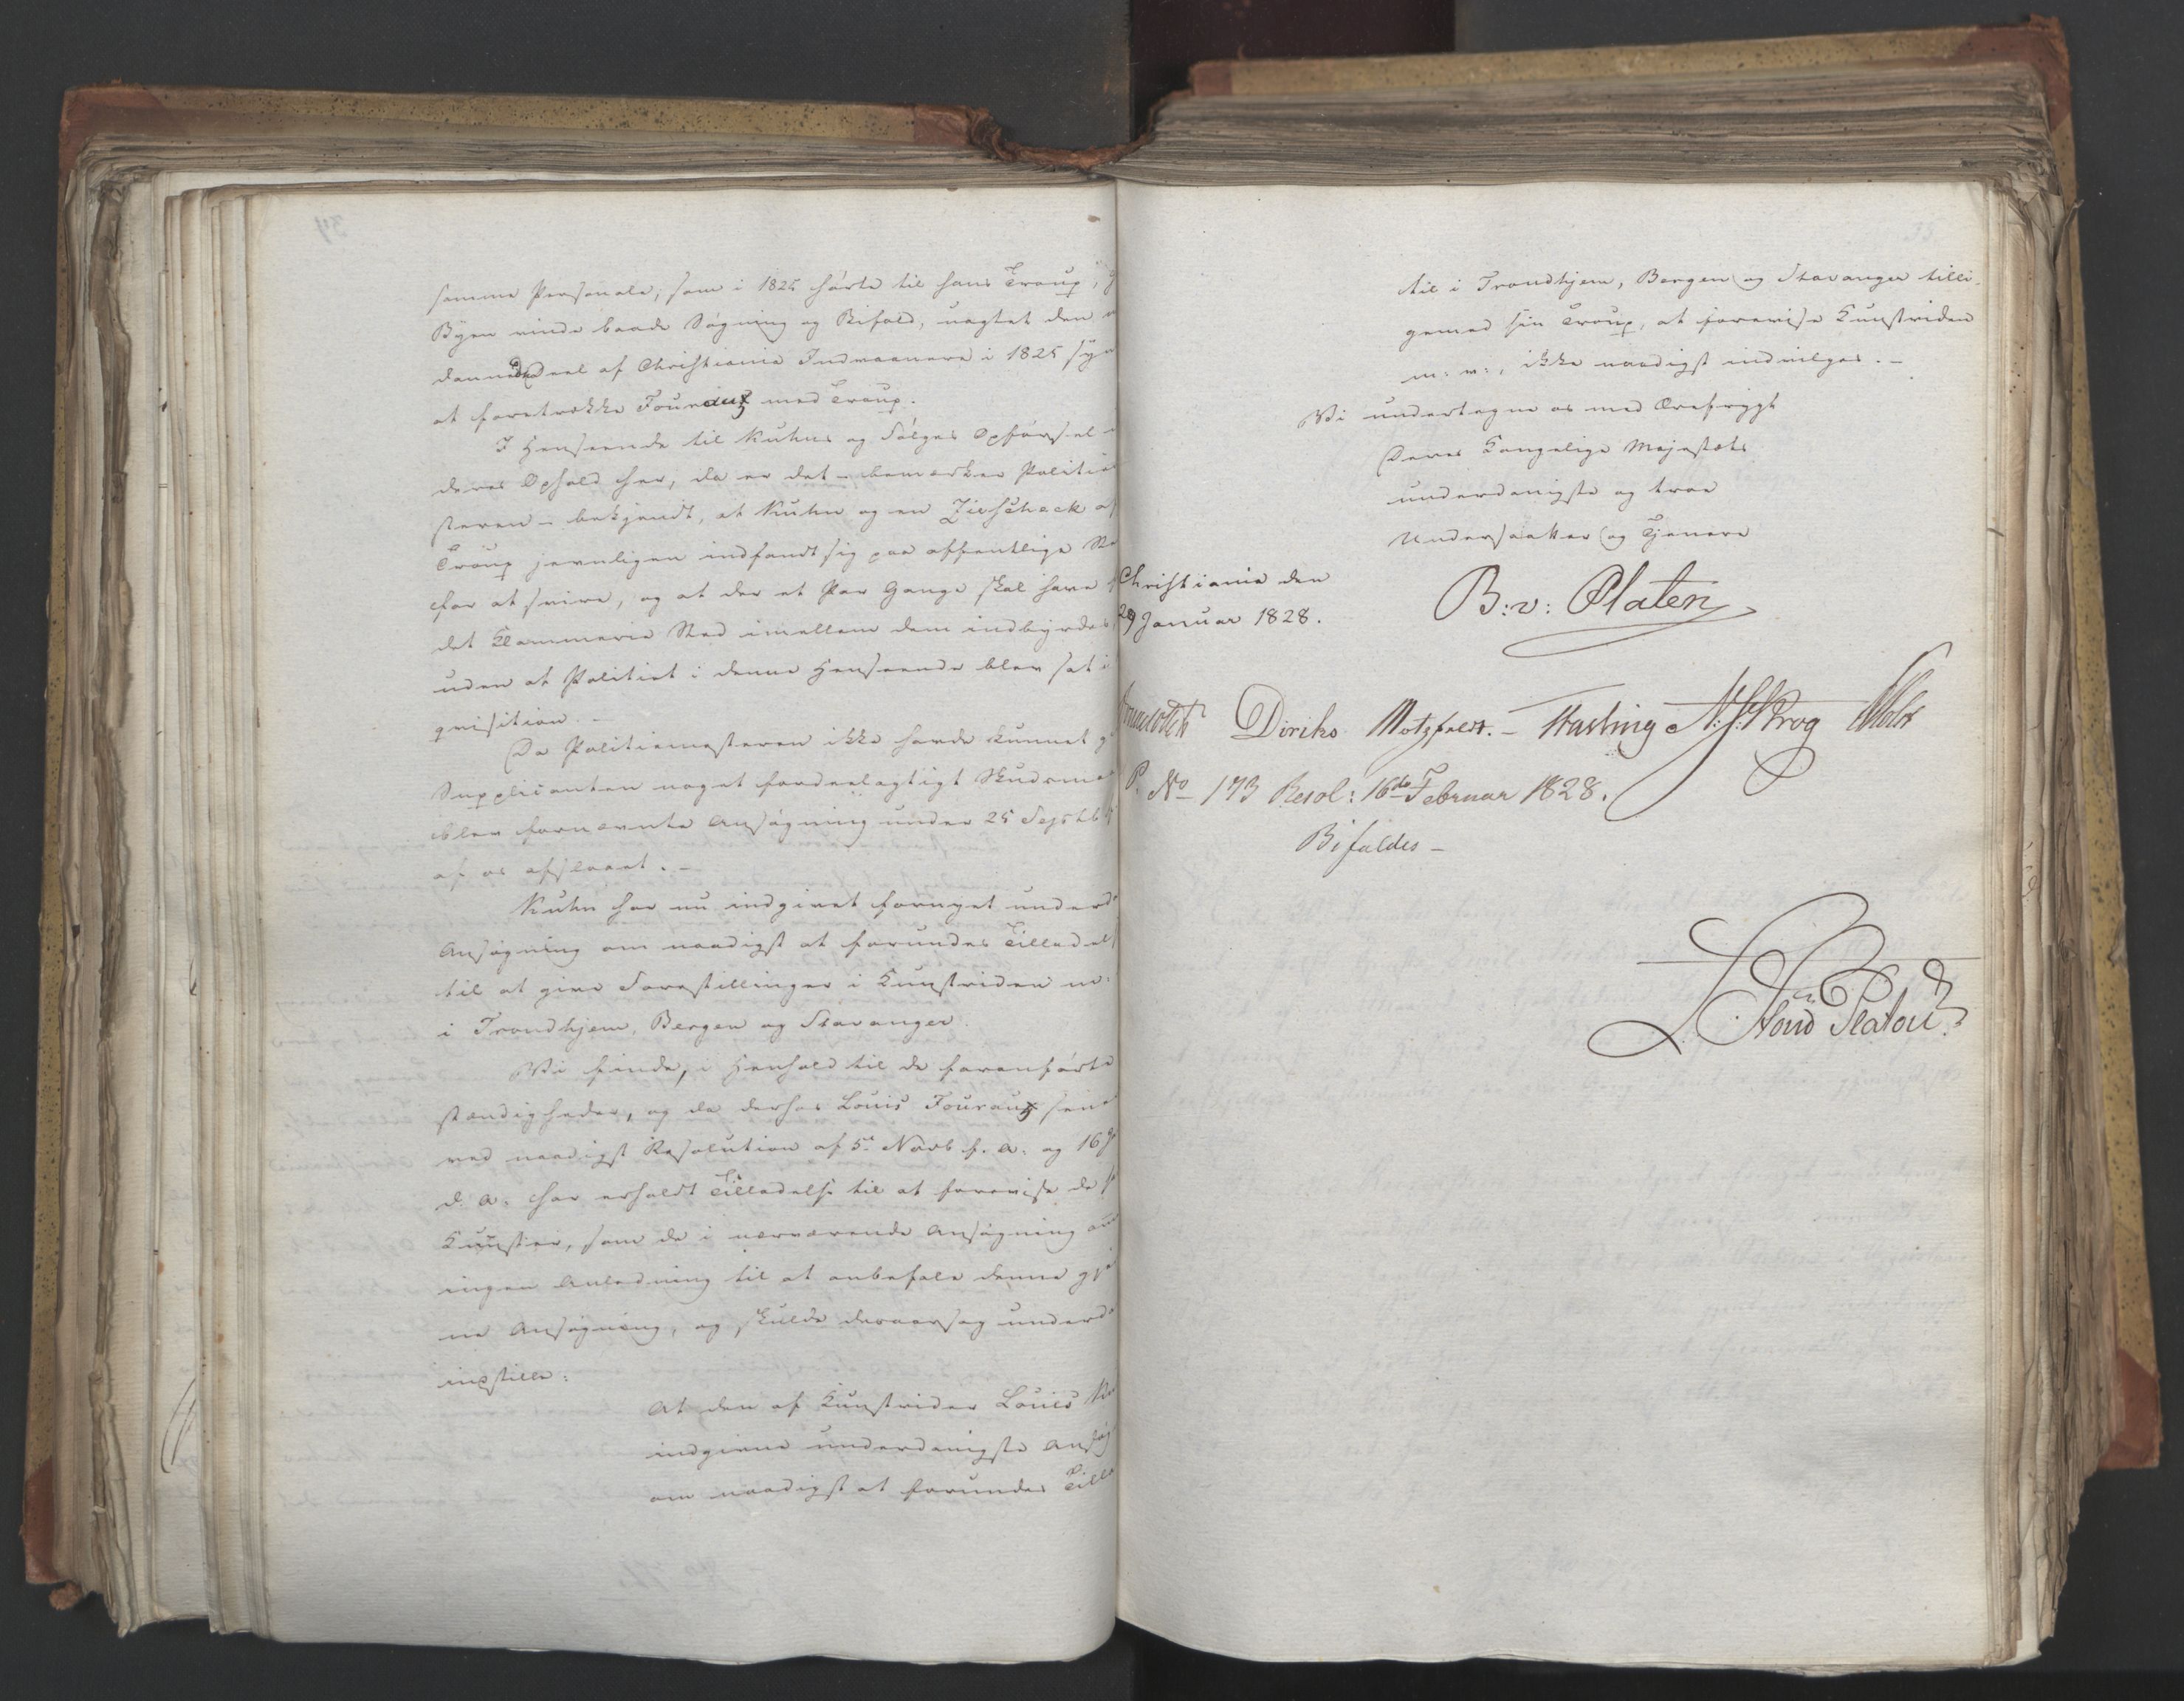 samme Personale, som i 1825 hørte til hans Troup, i
Byen vinde baade Søgning og Bifald, uagtet den
dannede Deel af Christiania Indvaanere i 1825 syn
at foretrække Fouraux med Troup.
I Henseende til Kuhns og Følges Opførsel
deres Ophold her, da er det – bemærker Politie
steren – bekjendt, at Kuhn og en Zivscheck af
Troup jevnligen indfandt sig paa offentlige Ste
for at svire, og at der et Par Gange skal have
det Klammerie Sted imellem dem indbyrdes
uden at Politiet i denne Henseende blev sat i
qvisition. –
Da Politiemesteren ikke havde kunnet g
Supplicanten noget fordeelagtigt Skudsmaa
blev fornævnte Ansøgning under 25 Septb
af os afslaaet. –
Kuhn har nu indgivet fornyet underd
Ansøgning om naadigst at forundes Tilladels
til at give Forestillinger i Kunstriden m:
i Trondhjem, Bergen og Stavanger.
Vi finde, i Henhold til de foranførte
stændigheder, og da derhos Louis Fouraux sene
ved naadigst Resolution af 5te Novb f. A. og 16 J
d. A. har erholdt Tilladelse til at forevise de s
Kunster, som de i nærværende Ansøgning om
ingen Anledning til at anbefale denne gje
ne Ansøgning, og skulde deraarsag underd
indstille:
At den af Kunstrider Louis Ku
indgivne underdanigste Ansøg
om naadigst at forundes Tilla
til i Trondhjem, Bergen og Stavanger tilli-
gemed sin Troup, at forevise Kunstriden
m: v:, ikke naadigst indvilges. –
Vi undertegne os med Ærefrygt
Deres Kongelige Majestæts
underdanigste og troe
Undersaatter og Tjenere
Christiania den
29 Januar 1828.
B: v: Platen
Diriks Motzfeldt. – Fasting N: J: Krog Holst
P. No 173 Resol: 16de Februar 1828.
Bifaldes –